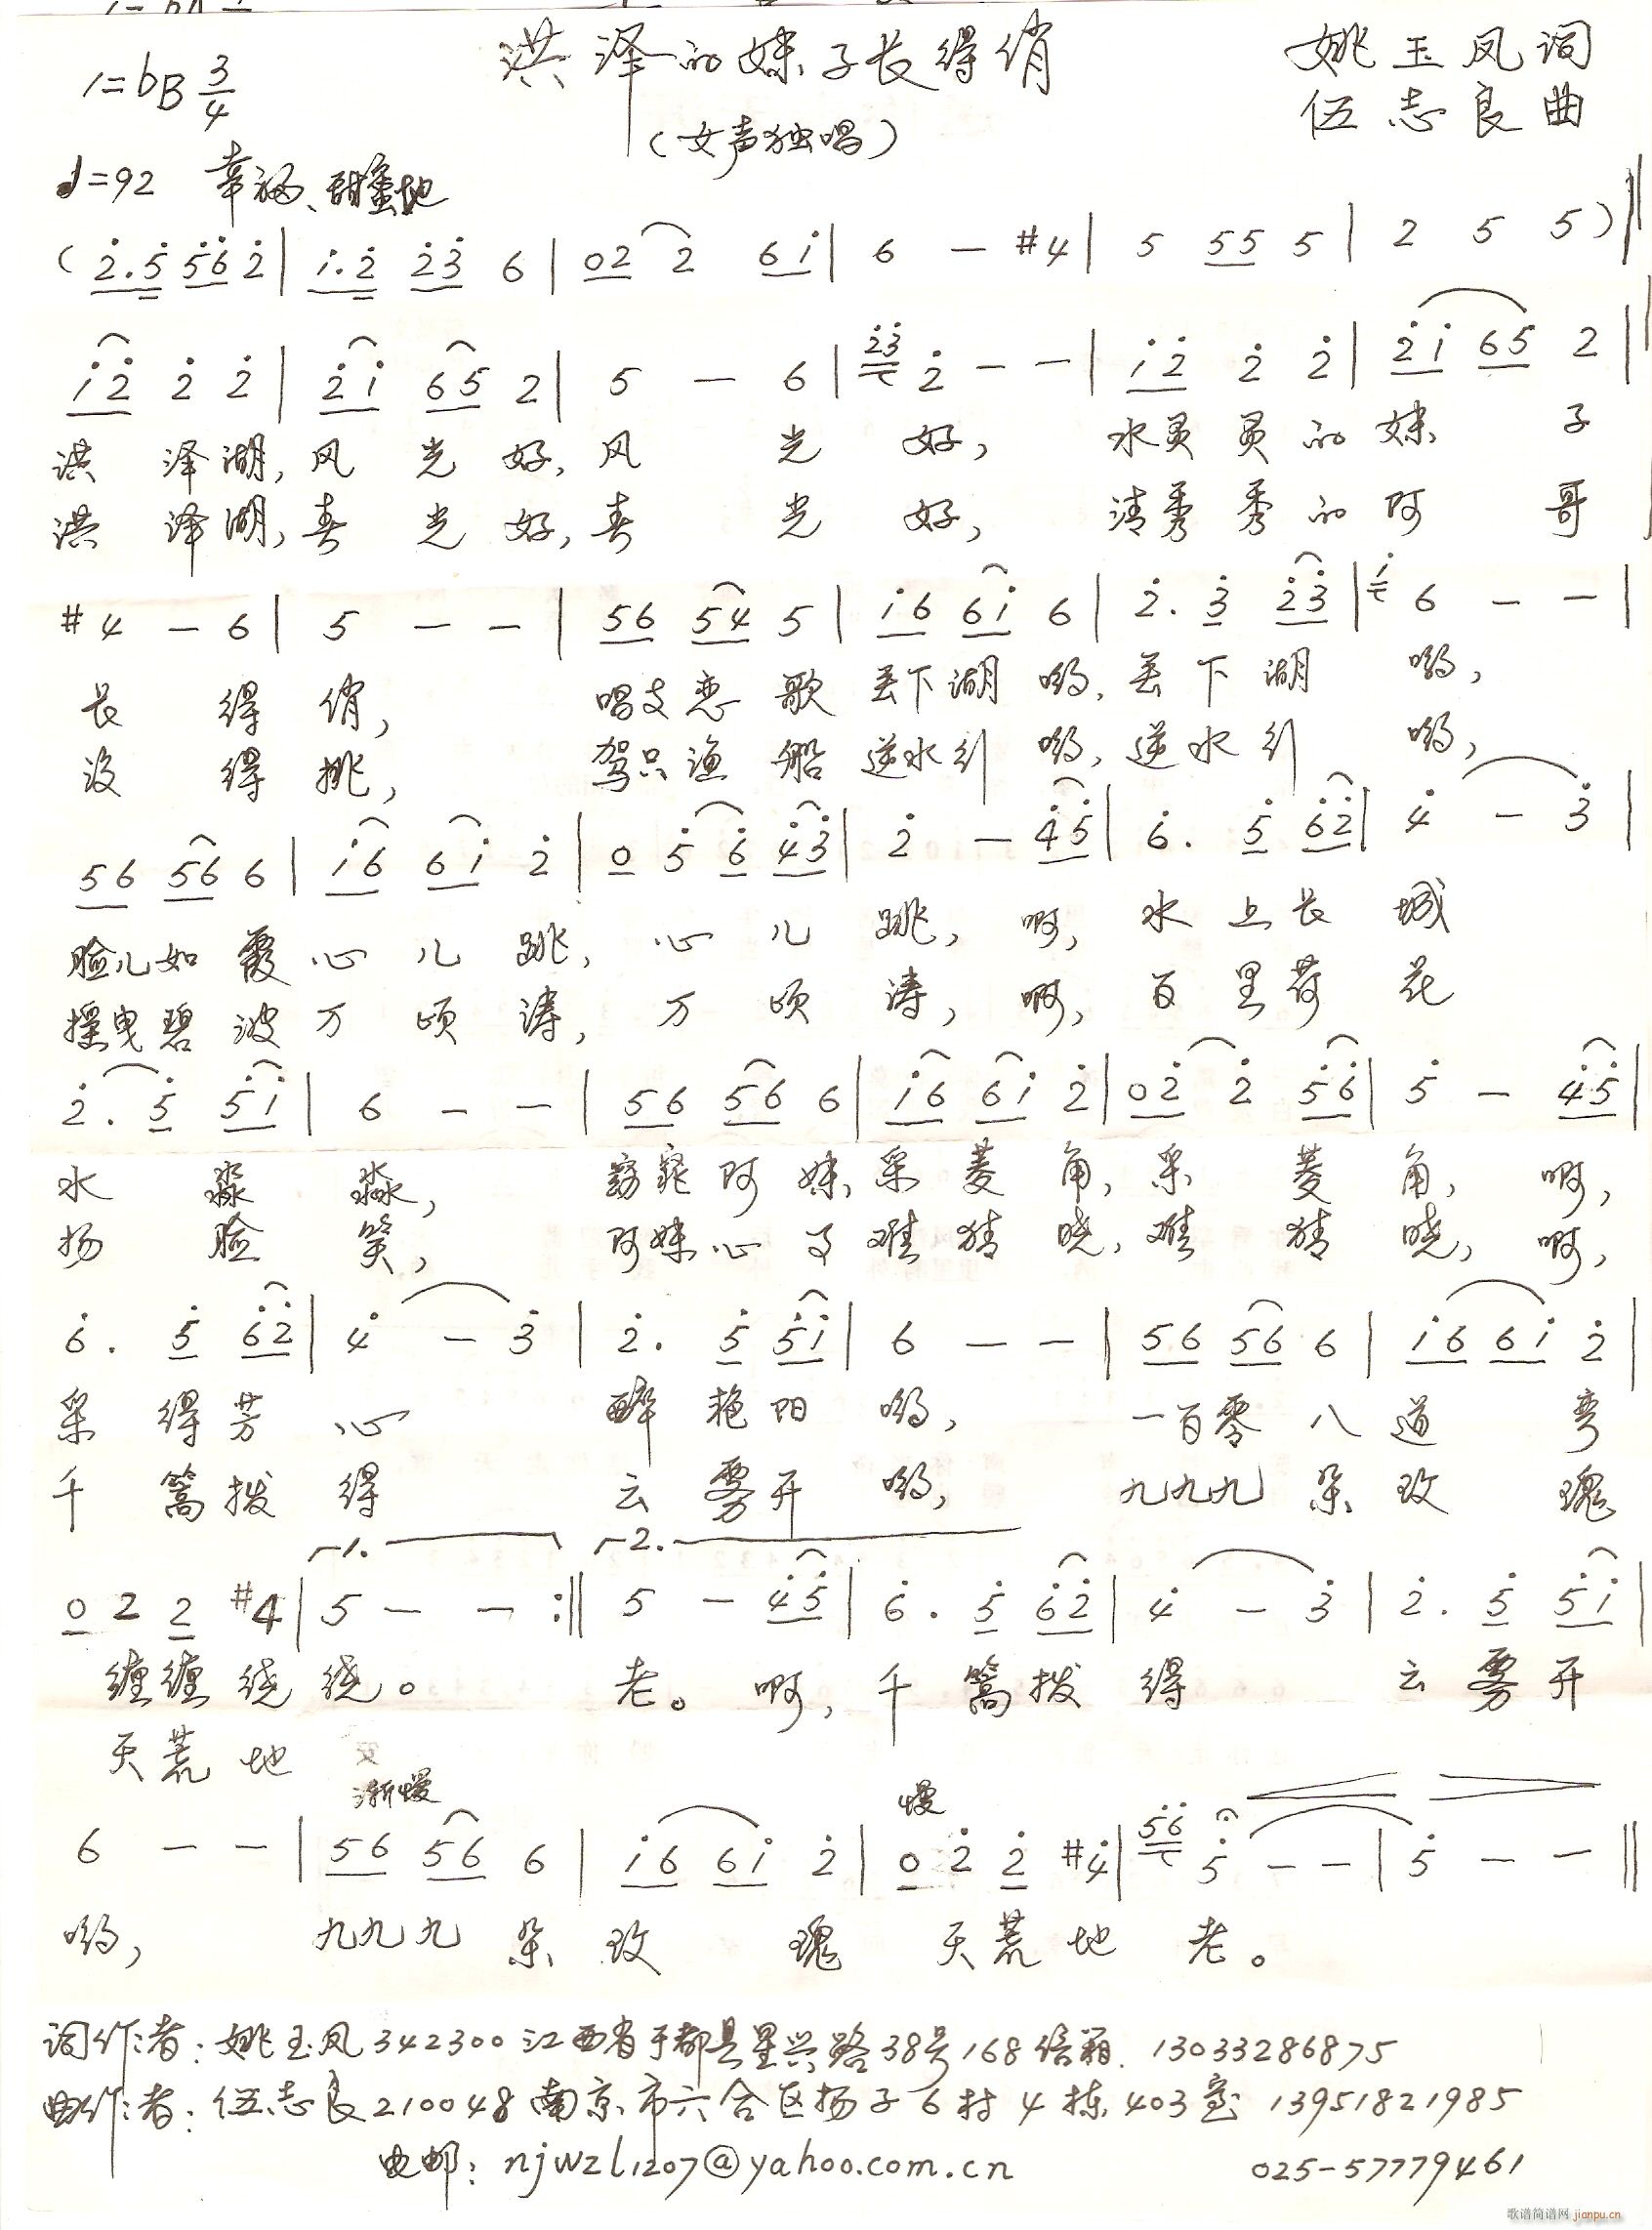 洪泽的妹子长得俏
姚玉凤词
1=bB 3/4
伍志良曲
(女声独唱)
♩=92 幸福、甜蜜地
(2̇.5̇ 5̇6̇ 2̇ | 1̇.2̇ 2̇3̇ 6 | 02 2 61̇ | 6 — #4 | 5 55 5 | 2 5 5) ‖
1̇2̇ 2̇ 2̇ | 2̇1̇ 65 2 | 5 — 6 | 2̇3̇ 2̇ — — | 1̇2̇ 2̇ 2̇ | 2̇1̇ 65 2 |
洪 泽湖,风 光 好,风 光 好, 水灵灵的妹 子
洪 泽湖,春 光 好,春 光 好, 清秀秀的阿 哥
#4 — 6 | 5 — — | 56 54 5 | 1̇6 61̇ 6 | 2̇. 3̇ 2̇3̇ | 1̇ 6 — — |
长 得 俏, 唱支恋 歌 丢下湖 哟,丢 下 湖 哟,
没 得 挑, 驾只渔 船 逆水行 哟,逆 水 行 哟,
56 56 6 | 1̇6 61̇ 2̇ | 0 5̇ 6̇ 4̇3̇ | 2̇ — 4̇5̇ | 6̇. 5̇ 6̇2̇ | 4̇ — 3̇ |
脸儿如 霞 心 儿 跳, 心 儿 跳, 啊, 水 上 长 城
摇曳碧 波 万 顷 涛, 万 顷 涛, 啊, 百 里 荷 花
2̇. 5̇ 5̇1̇ | 6 — — | 56 56 6 | 1̇6 61̇ 2̇ | 02̇ 2̇ 5̇6̇ | 5̇ — 4̇5̇ |
水 淼 淼, 窈窕 阿 妹,采 菱 角,采 菱 角, 啊,
扬 脸 笑, 阿妹心 事 难 猜 晓,难 猜 晓, 啊,
6̇. 5̇ 6̇2̇ | 4̇ — 3̇ | 2̇. 5̇ 5̇1̇ | 6 — — | 56 56 6 | 1̇6 61̇ 2̇ |
采 得 芳 心 醉 艳 阳 哟, 一百零 八 道 弯
千 篙 拨 得 云 雾 开 哟, 九九九 朵 玫 瑰
1. 2.
0 2 2 #4 | 5 — — :‖ 5 — 4̇5̇ | 6̇. 5̇ 6̇2̇ | 4̇ — 3̇ | 2̇. 5̇ 5̇1̇ |
缠缠 绕 绕。 老。 啊, 千 篙 拨 得 云 雾 开
天荒 地
渐慢 慢
6 — — | 56 56 6 | 1̇6 61̇ 2̇ | 0 2̇ 2̇ #4̇ | 5̇6̇ 5̇ — — | 5̇ — — ‖
哟, 九九九 朵 玫 瑰 天荒 地 老。
词作者:姚玉凤342300江西省于都县星兴路38号168信箱. 13033286875
曲作者:伍志良210048南京市六合区扬子6村4栋403室 13951821985
电邮:njwzl1207@yahoo.com.cn 025-57779461
歌谱简谱网 jianpu.cn